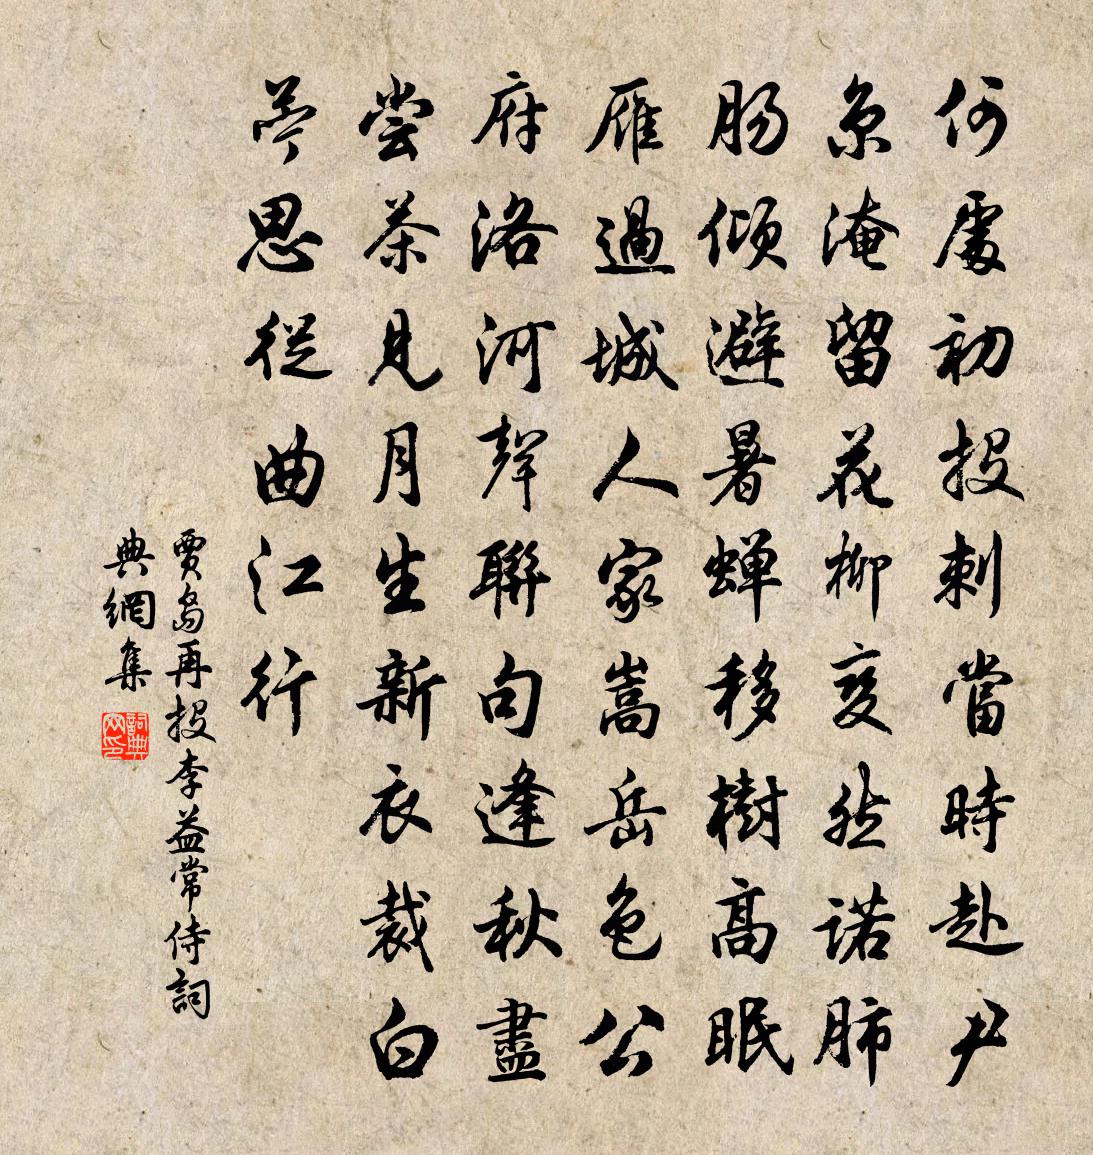 何處初投刺當時赴尹
京淹留花柳變然諾肺
腸傾避暑蟬移樹高眠
雁過城人家嵩岳色公
府洛河聲聯句逢秋盡
嘗茶見月生新衣裁白
苧思從曲江行
賈島再投李益常侍詞
典網集
詞典網印